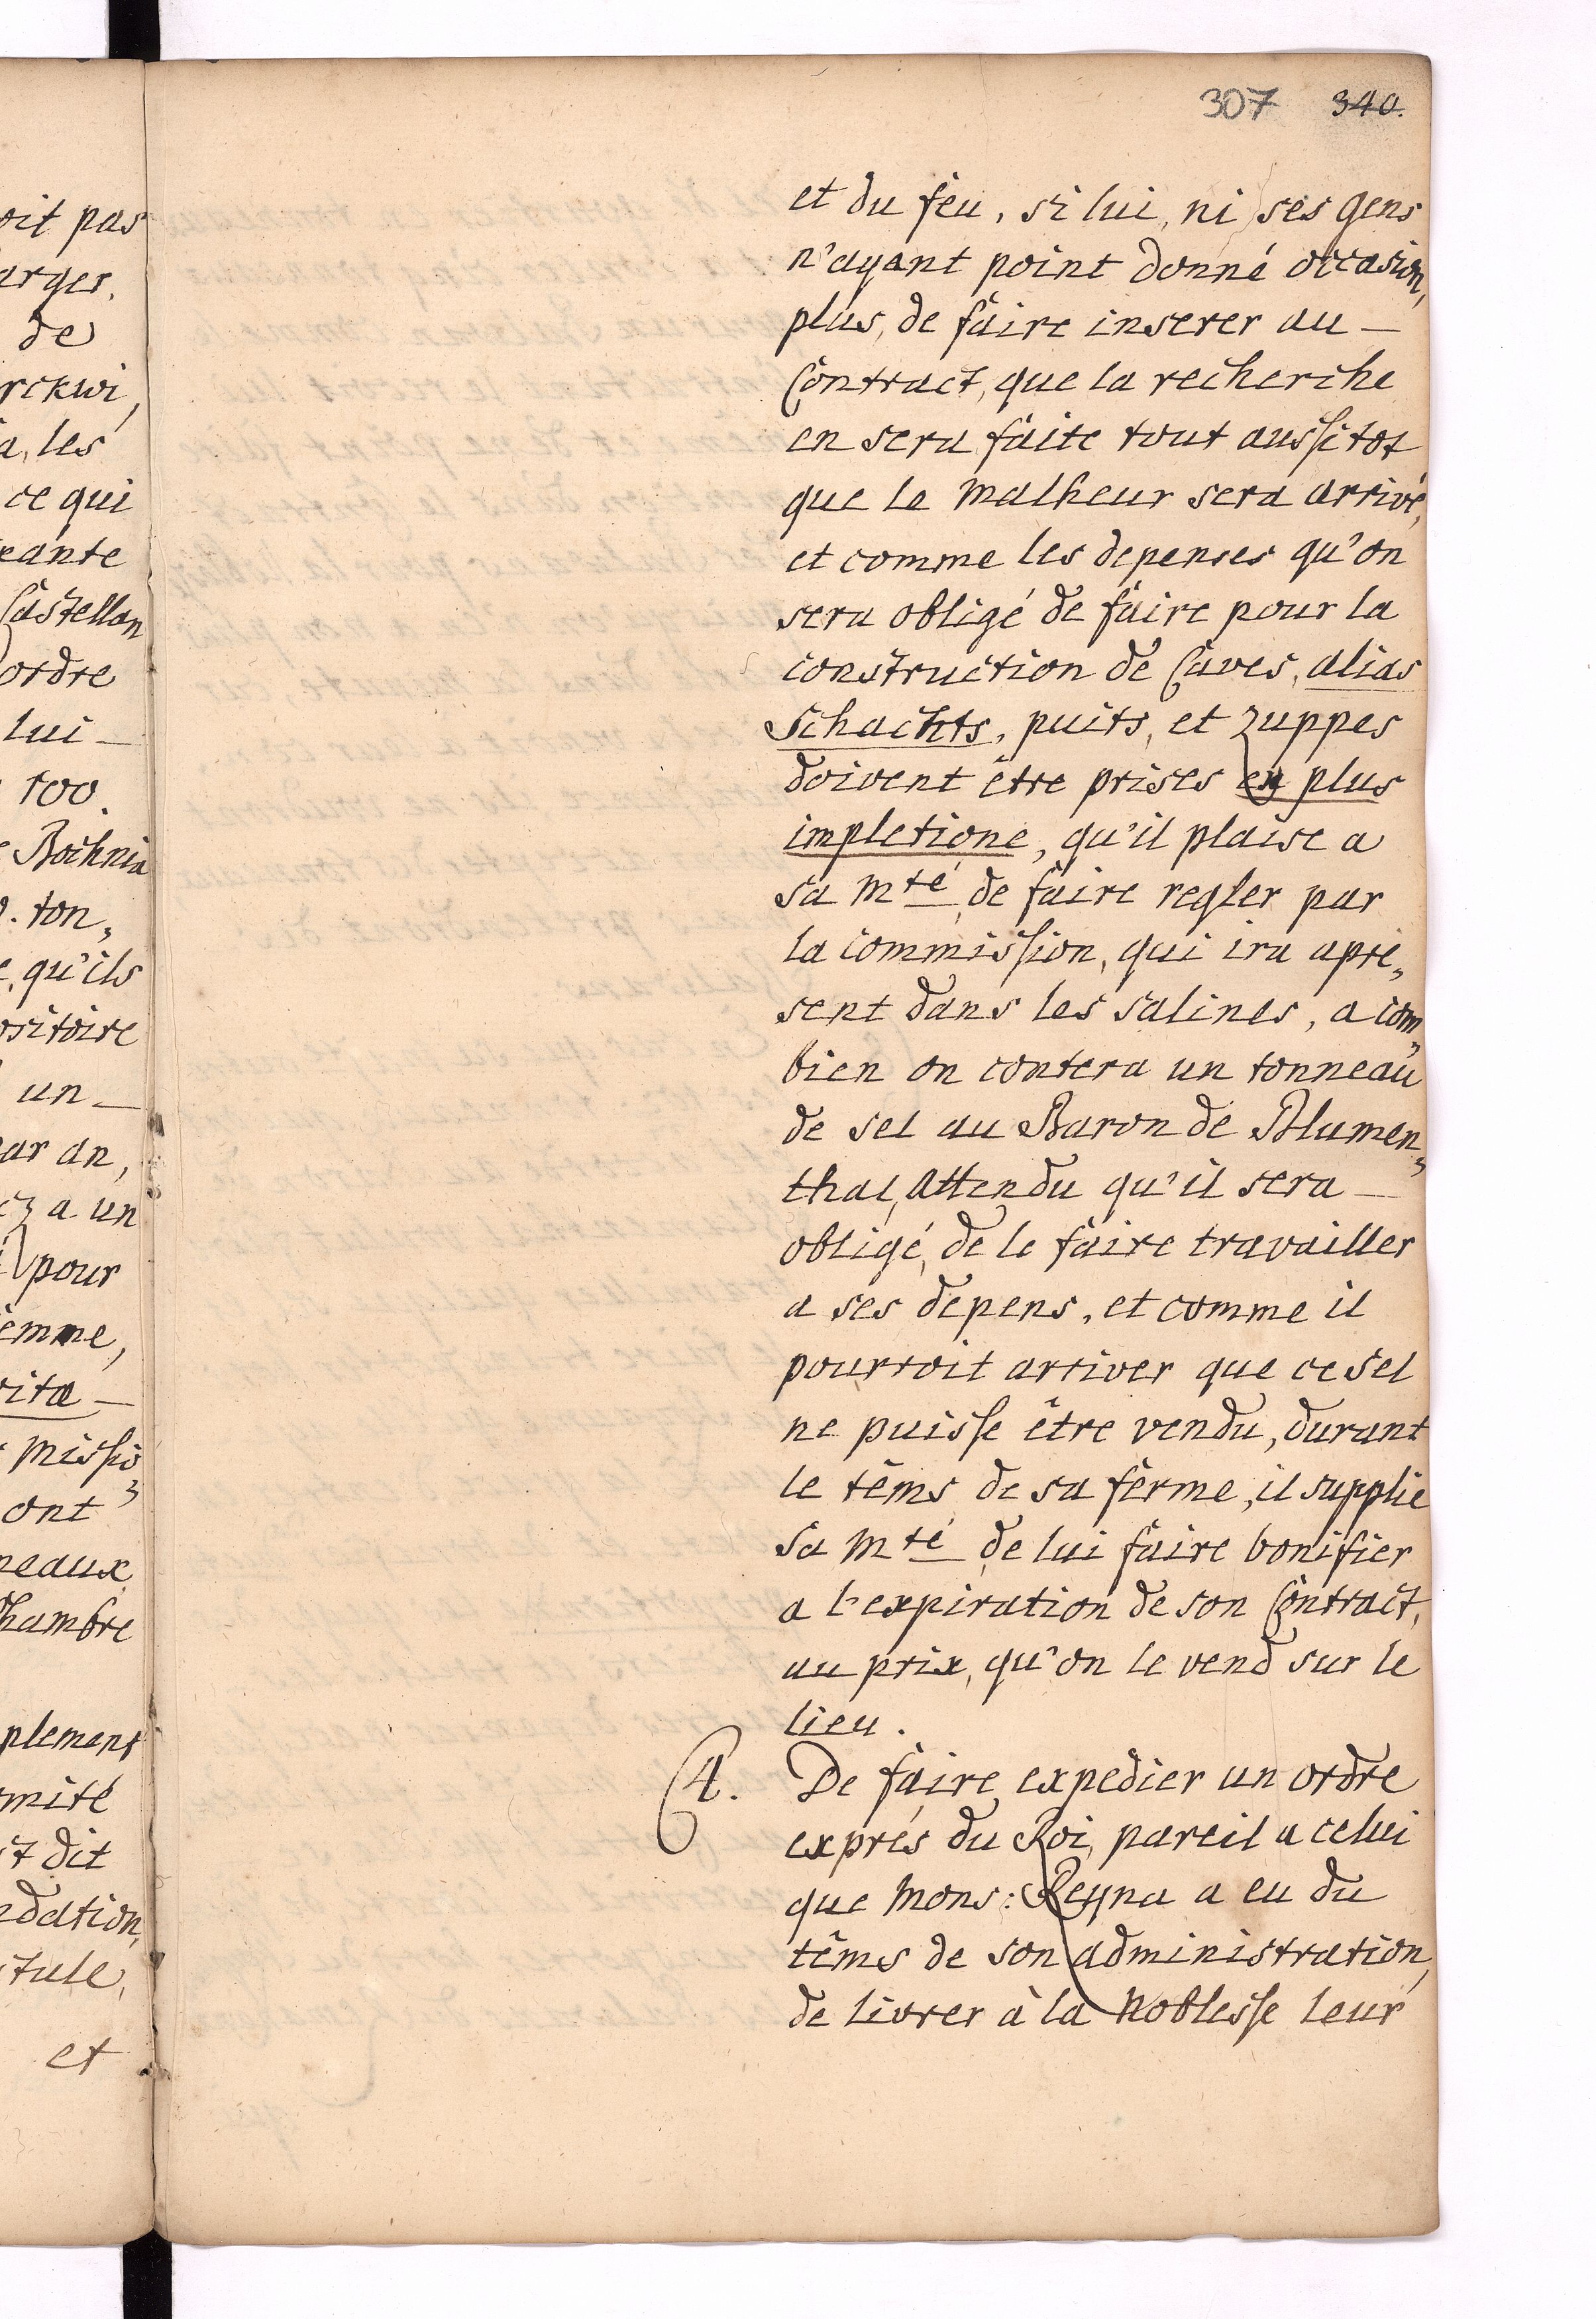 oit pas
arger.
de
rckwi,
a, les
ce qui
xante
Castellan
ordre
lui _
100.
Bochnia
ton„
e, qu'ils
ositoire
un _
par an,
a un
pour
emme,
vitæ _
missio„
ont
neaux
Chambre
plement
mité
dit
ndation,
stule,
et
307 340.
et du feu, si lui, ni ses gens
n'ayant point donné occasion,
plus, de faire inserer au _
Contract, que la recherche
en sera faite tout aussitot
que le malheur sera arrivé,
et comme les depenses qu'on
sera obligé de faire pour la
construction de Caves, alias
Schachts, puits, et zuppes
doivent être prises en plus
impletione, qu'il plaise a
sa Mté de faire regler par
la commission, qui ira apre„
sent dans les salines, a com„
bien on contera un tonneau
de sel au Baron de Blumen„
thal, attendu qu'il sera _
obligé, de le faire travailler
a ses depens, et comme il
pourroit arriver que ce sel
ne puisse être vendu, durant
le têms de sa ferme, il supplie
Sa Mté de lui faire bonifier
a l'expiration de son Contract,
au prix, qu'on le vend sur le
lieu.
4. De faire expedier un ordre
exprés du Roi, pareil a celui
que Mons: Reyna a eu du
têms de son administration,
de livrer à la Noblesse leur